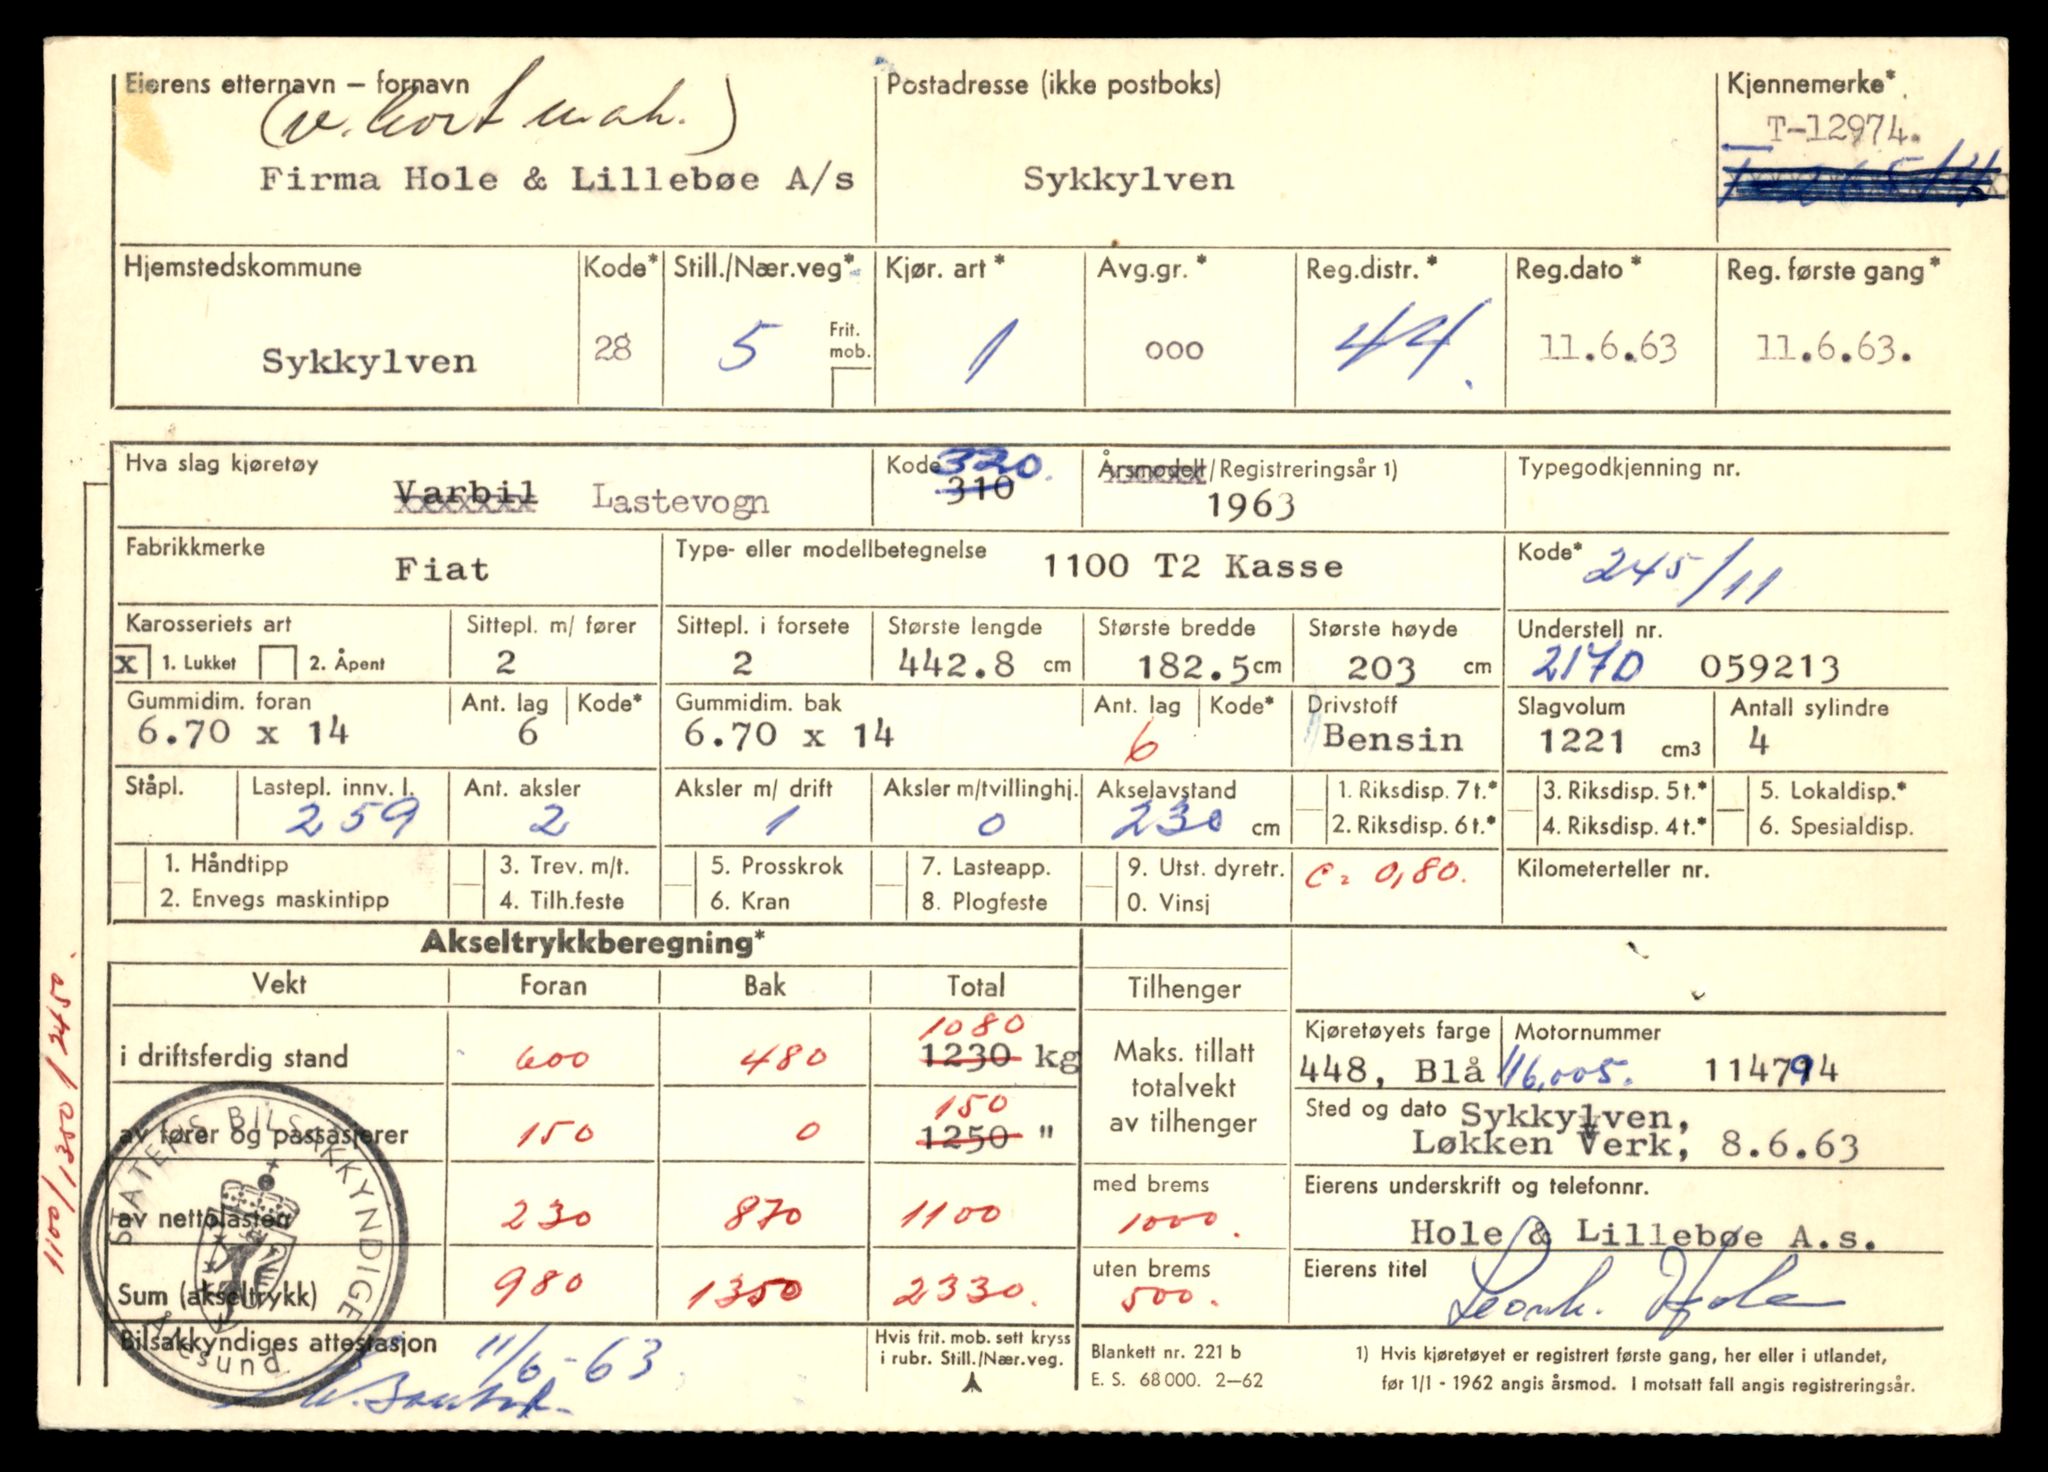 Eierens etternavn – fornavn
Postadresse (ikke postboks)
Kjennemerke*
T-12974.
Firma Hole & Lillebøe A/s
Sykkylven
Hjemstedskommune Kode* Still./Nær.veg* Kjør. art* Avg.gr.* Reg.distr.* Reg.dato* Reg. første gang*
Sykkylven 28 5 Frit. mob. 1 000 44. 11.6.63 11.6.63.
Hva slag kjøretøy Kode 320. Årsmodell/Registreringsår 1) Typegodkjenning nr.
Varbil Lastevogn 310 1963
Fabrikkmerke Type- eller modellbetegnelse Kode*
Fiat 1100 T2 Kasse 245/11
Karosseriets art Sittepl. m/ fører Sittepl. i forsete Største lengde Største bredde Største høyde Understell nr.
x 1. Lukket 2. Åpent 2 2 442.8 cm 182.5 cm 203 cm 217D 059213
Gummidim. foran Ant. lag Kode* Gummidim. bak Ant. lag Kode* Drivstoff Slagvolum Antall sylindre
6.70 x 14 6 6.70 x 14 6 Bensin 1221 cm3 4
Ståpl. Lastepl. innv. l. Ant. aksler Aksler m/ drift Aksler m/tvillinghj. Akselavstand 1. Riksdisp. 7 t.* 3. Riksdisp. 5 t.* 5. Lokaldisp.*
259 2 1 0 230 cm 2. Riksdisp. 6 t.* 4. Riksdisp. 4 t.* 6. Spesialdisp.
1. Håndtipp 3. Trev. m/t. 5. Prosskrok 7. Lasteapp. 9. Utst. dyretr. C = 0,80. Kilometerteller nr.
2. Envegs maskintipp 4. Tilh.feste 6. Kran 8. Plogfeste 0. Vinsj
Akseltrykkberegning*
Vekt Foran Bak Total Tilhenger
1080
i driftsferdig stand 600 480 1230 kg
Maks. tillatt
totalvekt
av tilhenger
Kjøretøyets farge Motornummer
448, Blå 116.005. 114794
150
av fører og passasjerer 150 0 1250 "
Sted og dato Sykkylven,
Løkken Verk, 8.6.63
av nettolasten 230 870 1100
med brems
1000.
Eierens underskrift og telefonnr.
Hole & Lillebøe A.s.
Sum (akseltrykk) 980 1350 2330.
uten brems
500.
Eierens titel
Leonh. Hole
Bilsakkyndiges attestasjon
11/6-63.
Hvis frit. mob. sett kryss
i rubr. Still./Nær.veg.
Blankett nr. 221 b
E. S. 68 000. 2–62
1) Hvis kjøretøyet er registrert første gang, her eller i utlandet,
før 1/1 - 1962 angis årsmod. I motsatt fall angis registreringsår.
STATENS BILSAKKYNDIGE
Ålesund.
1100/1350/2450.